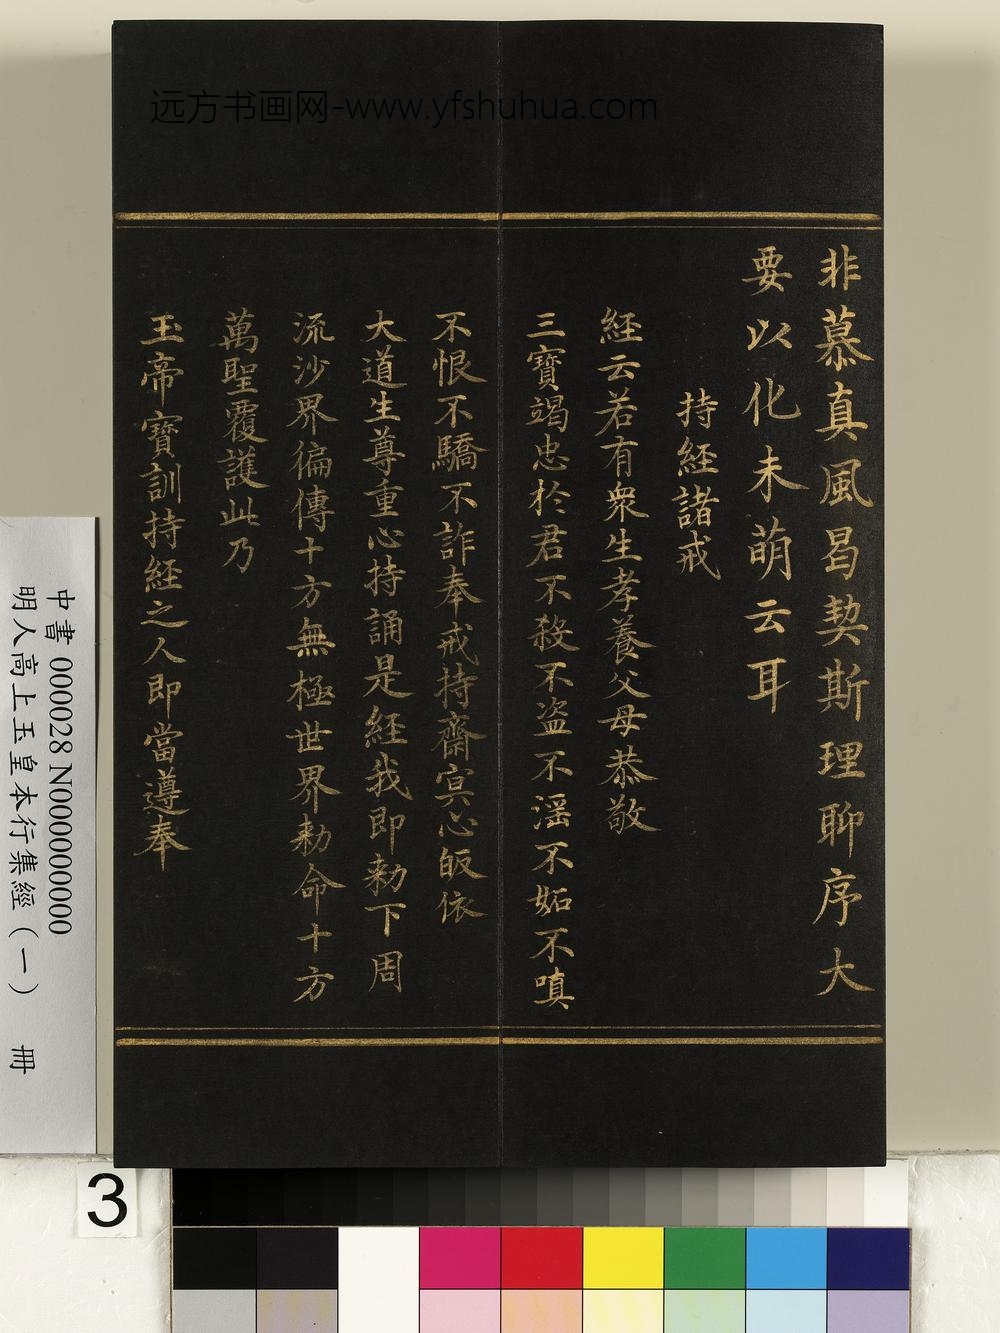 远方书画网-www.yfshuhua.com
非慕真風曷契斯理聊序大
要以化未萌云耳
持経諸戒
経云若有衆生孝養父母恭敬
三寳竭忠於君不殺不盗不滛不妬不嗔
不恨不驕不詐奉戒持齋冥心皈依
大道生尊重心持誦是経我即勑下周
流沙界徧傳十方無極世界勑命十方
萬聖覆護此乃
玉帝寳訓持経之人即當遵奉
中書 000028 N000000000
明人高上玉皇本行集經（一） 冊
3